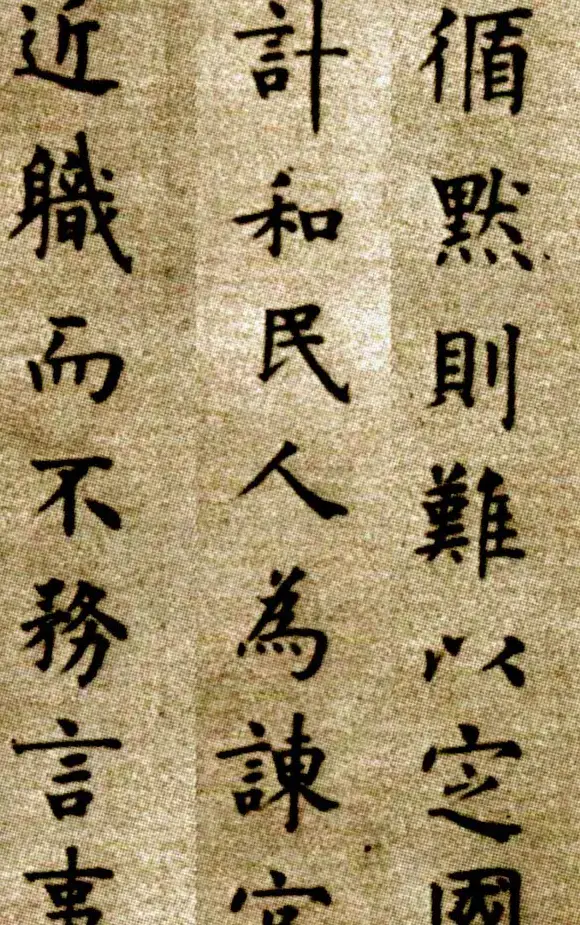 循默則難以定國
計和民人為諫官
近職而不務言事